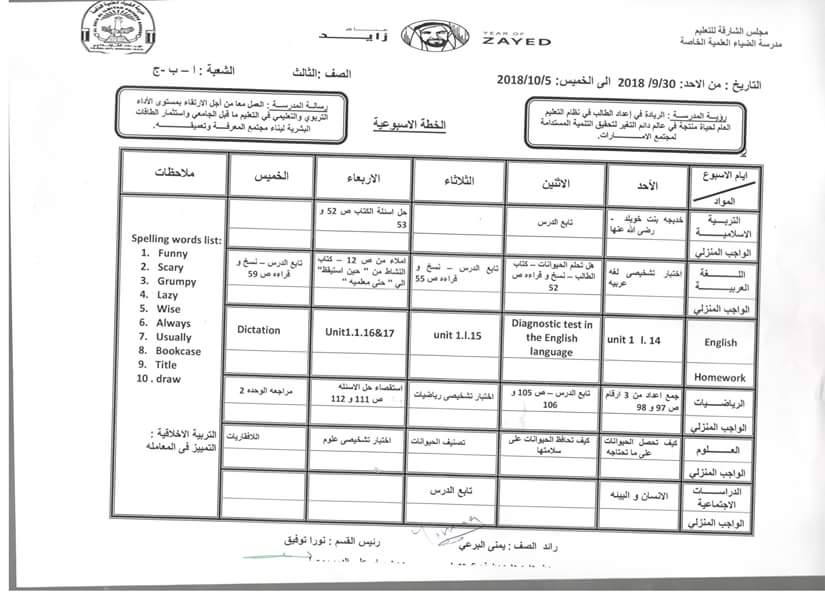 مجلس الشارقة للتعليم
مدرسة الضياء العلمية الخاصة
YEAR OF
ZAYED
عام
زايد
التاريخ : من الاحد: 9/30/ 2018 الى الخميس: 2018/10/5
الصف :الثالث
الشعبة : ا – ب -ج
رؤية المدرسة : الريادة في إعداد الطالب في نظام التعليم
العام لحياة منتجة في عالم دائم التغير لتحقيق التنمية المستدامة
لمجتمع الامـــارات.
الخطة الاسبوعية
رسالة المدرسة : العمل معا من أجل الارتقاء بمستوى الأداء
التربوي والتعليمي في التعليم ما قبل الجامعي واستثمار الطاقات
البشرية لبناء مجتمع المعرفة وتعميقه.
ايام الاسبوع
المواد
الأحد
الاثنين
الثلاثاء
الاربعاء
الخميس
ملاحظات
التربية
الاسلامية
خديجه بنت خويلد -
رضى الله عنها
تابع الدرس
حل اسئلة الكتاب ص 52 و
53
الواجب المنزلي
اللغة
العربية
اختبار تشخيصى لغه
عربيه
هل تحلم الحيوانات – كتاب
الطالب – نسخ و قراءه ص
52
تابع الدرس – نسخ و
قراءه ص 55
املاء من ص 12 – كتاب
النشاط من " حين استيقظ"
الي " حتى معلميه "
تابع الدرس – نسخ و
قراءه ص 59
الواجب المنزلي
English
unit 1 l. 14
Diagnostic test in
the English
language
unit 1.l.15
Unit1.1.16&17
Dictation
Homework
الرياضيات
جمع اعداد من 3 ارقام
ص 97 و 98
تابع الدرس – ص 105 و
106
اختبار تشخيصى رياضيات
استقصاء حل الاسئله
ص 111 و 112
مراجعه الوحده 2
الواجب المنزلي
العلوم
كيف تحصل الحيوانات
على ما تحتاجه
كيف تحافظ الحيوانات على
سلامتها
تصنيف الحيوانات
اختبار تشخيصى علوم
اللافقاريات
الواجب المنزلي
الدراسات
الاجتماعية
الانسان و البيئه
تابع الدرس
الواجب المنزلي
Spelling words list:
1. Funny
2. Scary
3. Grumpy
4. Lazy
5. Wise
6. Always
7. Usually
8. Bookcase
9. Title
10 . draw
التربية الاخلاقية :
التمييز فى المعامله
رائد الصف : يمنى البرعي
رئيس القسم : نورا توفيق